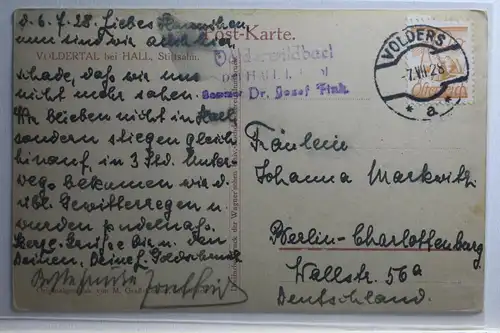 D. 6. 7. 28. Liebes
nun sind wir alle hier,
schade, daß wir uns
nicht mehr sahen.
Wir blieben nicht in Hall
sondern stiegen gleich
hinauf, in 3 Std. Unter-
wegs bekamen wir d.
übl. Gewitterregen u.
wurden pudelnaß.
Herzl. Grüße Dir u. den
Deinen, Deine
Beste Grüße
Post-Karte.
VOLDERTAL bei HALL, Stiftsalm.
Volderwildbad
bei HALL i.
Dr. Josef Fink
VOLDERS
7.VII.28
* a
Fräulein
Johanna Markwitz
Berlin-Charlottenburg
Wallstr. 56a
Deutschland.